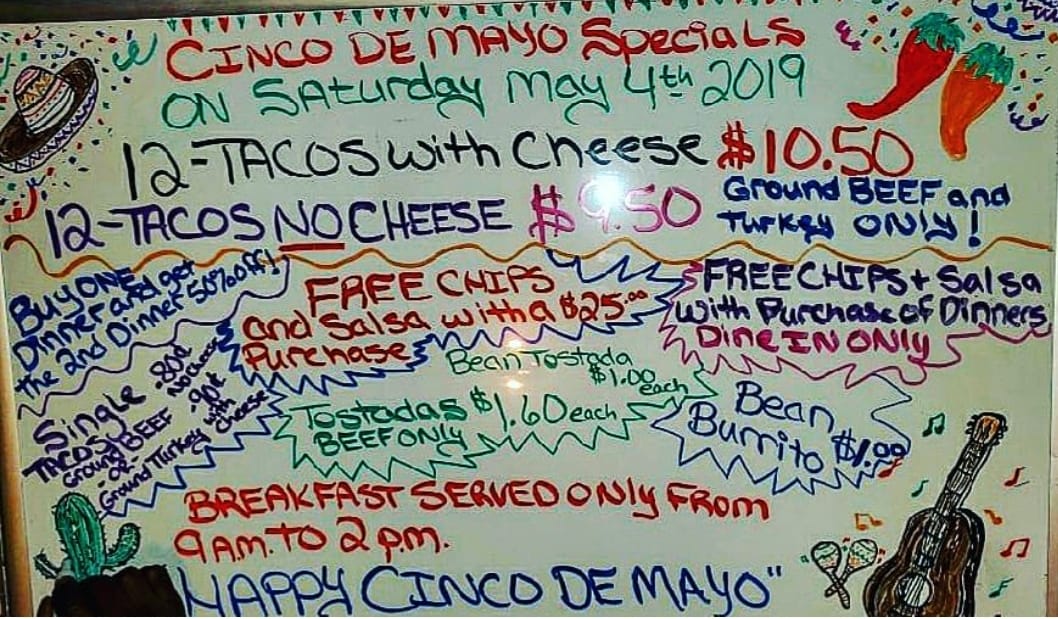 CINCO DE MAYO Specials
ON SATurday May 4th 2019
12-TACOS with Cheese $10.50
12-TACOS NO CHEESE $9.50
Ground BEEF and
Turkey ONLY!
BUY ONE
Dinner and get
the 2nd Dinner 50% off!
FREE CHIPS
and Salsa with a $25.00
Purchase
FREE CHIPS + Salsa
with Purchase of Dinners
Dine IN ONLY
Single
TACOS
Ground BEEF
-or-
Ground Turkey
.80¢
NO Cheese
.90¢
with
cheese
Bean Tostada
$1.00
each
Tostadas $1.60 each
BEEF ONLY
Bean
Burrito $1.00
BREAKFAST SERVED ONLY FROM
9 A.M. TO 2 p.m.
"HAPPY CINCO DE MAYO"